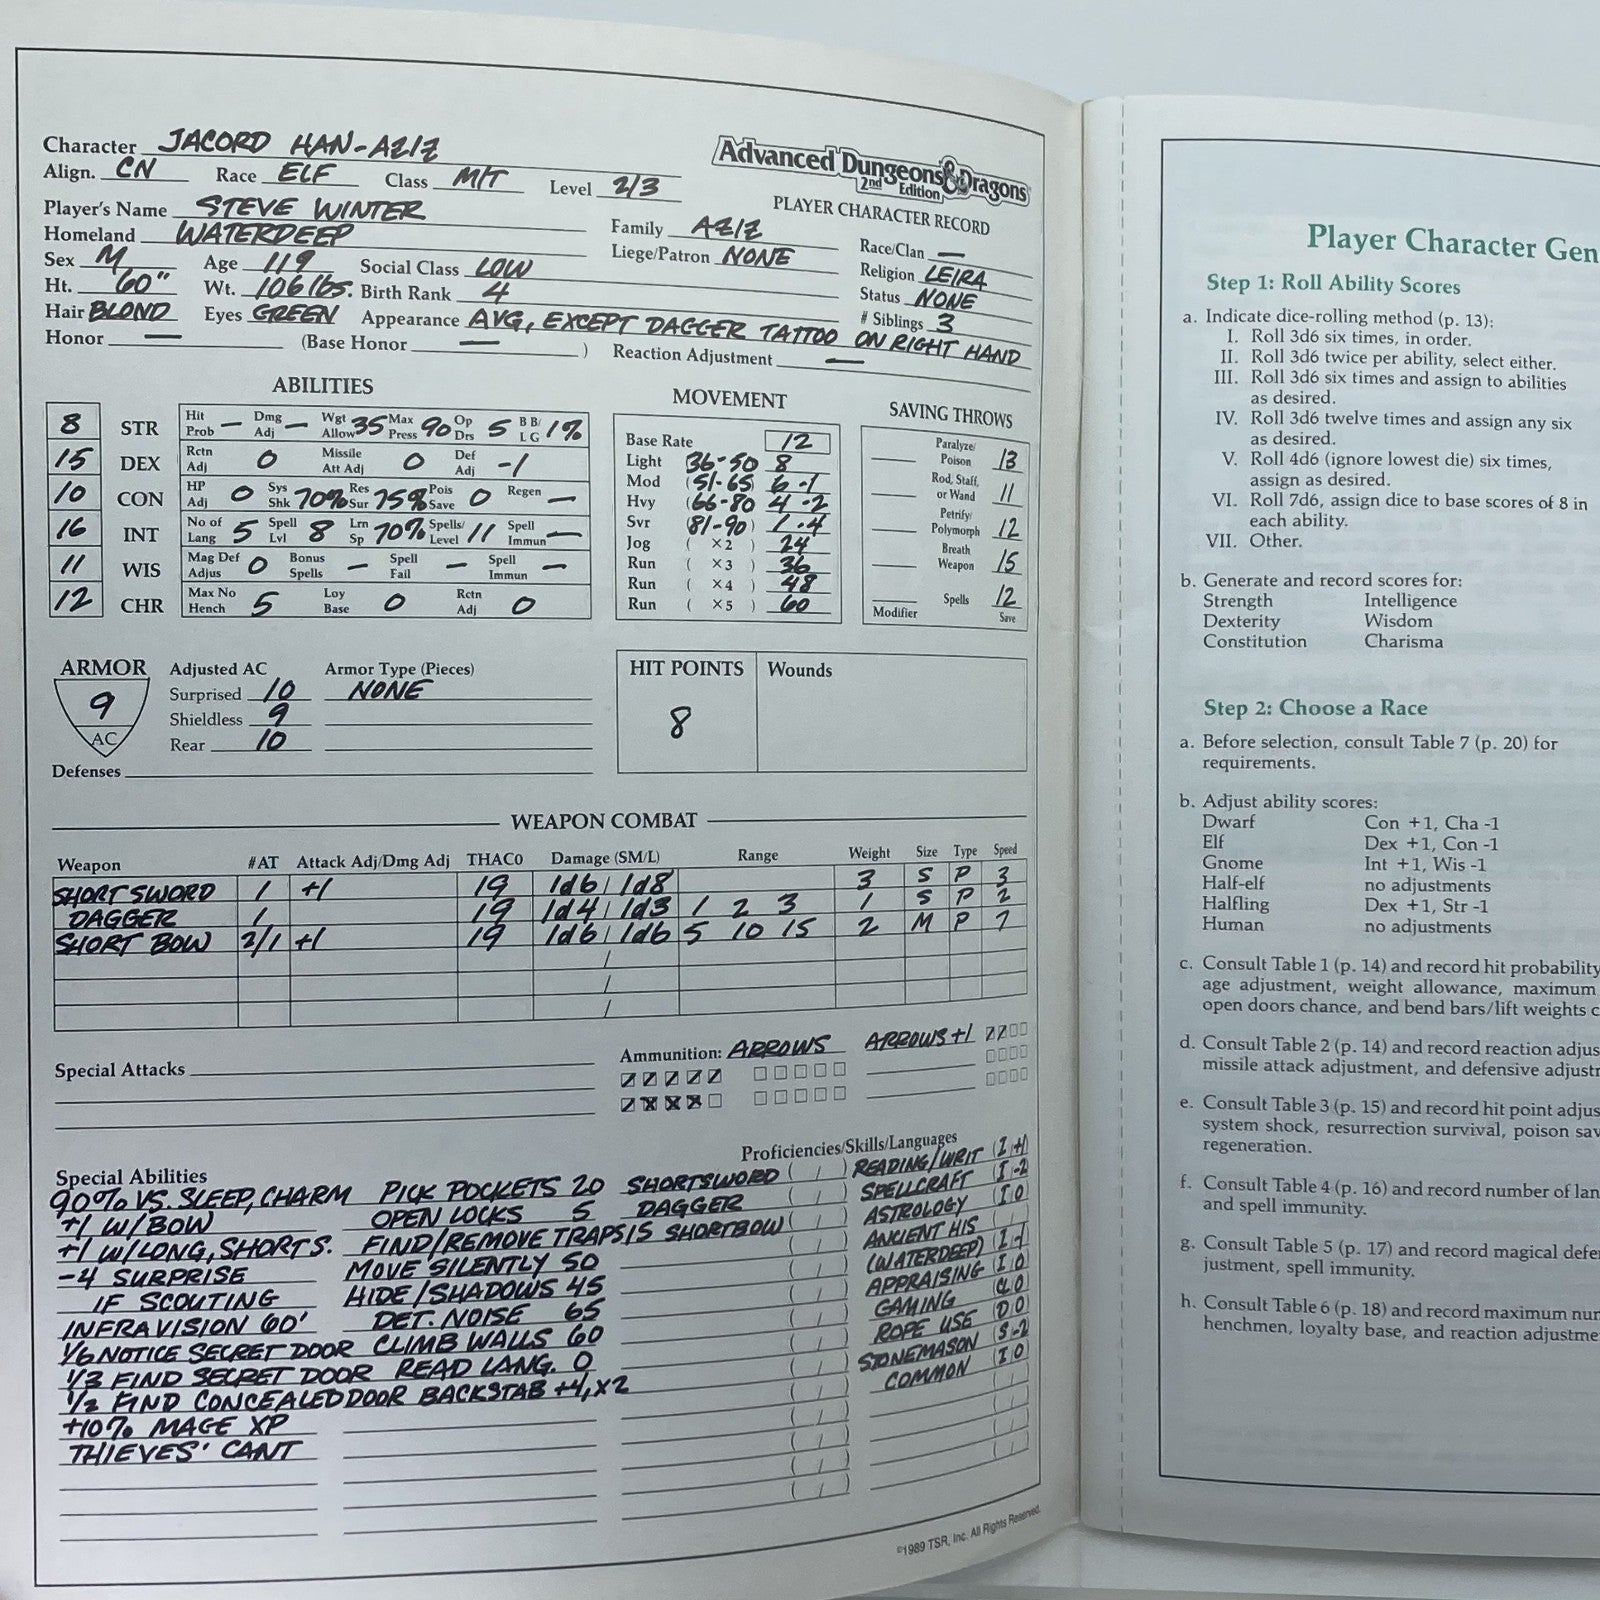 Character JACORD HAN-AZIZ
Align. CN Race ELF Class M/T Level 2/3
Advanced Dungeons & Dragons
2nd Edition
PLAYER CHARACTER RECORD
Player's Name STEVE WINTER
Homeland WATERDEEP
Family AZIZ
Liege/Patron NONE
Race/Clan —
Religion LEIRA
Status NONE
# Siblings 3
Sex M Age 119 Social Class LOW
Ht. 60" Wt. 106 lbs. Birth Rank 4
Hair BLOND Eyes GREEN Appearance AVG, EXCEPT DAGGER TATTOO ON RIGHT HAND
Honor — (Base Honor — ) Reaction Adjustment —
ABILITIES
8 STR Hit Prob — Dmg Adj — Wgt Allow 35 Max Press 90 Op Drs 5 BB/LG 1%
15 DEX Rctn Adj 0 Missile Att Adj 0 Def Adj -1
10 CON HP Adj 0 Sys Shk 70% Res Sur 75% Pois Save 0 Regen —
16 INT No of Lang 5 Spell Lvl 8 Lrn Sp 70% Spells/Level 11 Spell Immun —
11 WIS Mag Def Adjus 0 Bonus Spells — Spell Fail — Spell Immun —
12 CHR Max No Hench 5 Loy Base 0 Rctn Adj 0
MOVEMENT
Base Rate 12
Light (36-50) 8
Mod (51-65) 6 -1
Hvy (66-80) 4 -2
Svr (81-90) 1 -4
Jog ( ×2 ) 24
Run ( ×3 ) 36
Run ( ×4 ) 48
Run ( ×5 ) 60
SAVING THROWS
Paralyze/Poison 13
Rod, Staff, or Wand 11
Petrify/Polymorph 12
Breath Weapon 15
Spells 12
Modifier Save
ARMOR
9
AC
Adjusted AC
Surprised 10
Shieldless 9
Rear 10
Armor Type (Pieces)
NONE
Defenses
HIT POINTS
8
Wounds
WEAPON COMBAT
Weapon #AT Attack Adj/Dmg Adj THAC0 Damage (SM/L) Range Weight Size Type Speed
SHORT SWORD 1 +1 19 1d6 / 1d8 3 S P 3
DAGGER 1 19 1d4 / 1d3 1 2 3 1 S P 2
SHORT BOW 2/1 +1 19 1d6 / 1d6 5 10 15 2 M P 7
Special Attacks
Ammunition: ARROWS ARROWS +1
Special Abilities
90% VS. SLEEP, CHARM
+1 W/BOW
+1 W/LONG, SHORT S.
-4 SURPRISE
IF SCOUTING
INFRAVISION 60'
1/6 NOTICE SECRET DOOR
1/3 FIND SECRET DOOR
1/2 FIND CONCEALED DOOR
+10% MAGE XP
THIEVES' CANT
PICK POCKETS 20
OPEN LOCKS 5
FIND/REMOVE TRAPS 15
MOVE SILENTLY 50
HIDE/SHADOWS 45
DET. NOISE 65
CLIMB WALLS 60
READ LANG. 0
BACKSTAB +4, X2
Proficiencies/Skills/Languages
SHORTSWORD
DAGGER
SHORTBOW
READING/WRIT (I/+1)
SPELLCRAFT (I/-2)
ASTROLOGY (I/0)
ANCIENT HIS
(WATERDEEP) (I/-1)
APPRAISING (I/0)
GAMING
ROPE USE (D/0)
STONEMASON (S/-2)
COMMON (I/0)
©1989 TSR, Inc. All Rights Reserved.
Player Character Gen
Step 1: Roll Ability Scores
a. Indicate dice-rolling method (p. 13):
I. Roll 3d6 six times, in order.
II. Roll 3d6 twice per ability, select either.
III. Roll 3d6 six times and assign to abilities
as desired.
IV. Roll 3d6 twelve times and assign any six
as desired.
V. Roll 4d6 (ignore lowest die) six times,
assign as desired.
VI. Roll 7d6, assign dice to base scores of 8 in
each ability.
VII. Other.
b. Generate and record scores for:
Strength Intelligence
Dexterity Wisdom
Constitution Charisma
Step 2: Choose a Race
a. Before selection, consult Table 7 (p. 20) for
requirements.
b. Adjust ability scores:
Dwarf Con +1, Cha -1
Elf Dex +1, Con -1
Gnome Int +1, Wis -1
Half-elf no adjustments
Halfling Dex +1, Str -1
Human no adjustments
c. Consult Table 1 (p. 14) and record hit probability
age adjustment, weight allowance, maximum
open doors chance, and bend bars/lift weights c
d. Consult Table 2 (p. 14) and record reaction adjus
missile attack adjustment, and defensive adjustr
e. Consult Table 3 (p. 15) and record hit point adjus
system shock, resurrection survival, poison sav
regeneration.
f. Consult Table 4 (p. 16) and record number of lan
and spell immunity.
g. Consult Table 5 (p. 17) and record magical defe
justment, spell immunity.
h. Consult Table 6 (p. 18) and record maximum nur
henchmen, loyalty base, and reaction adjustme